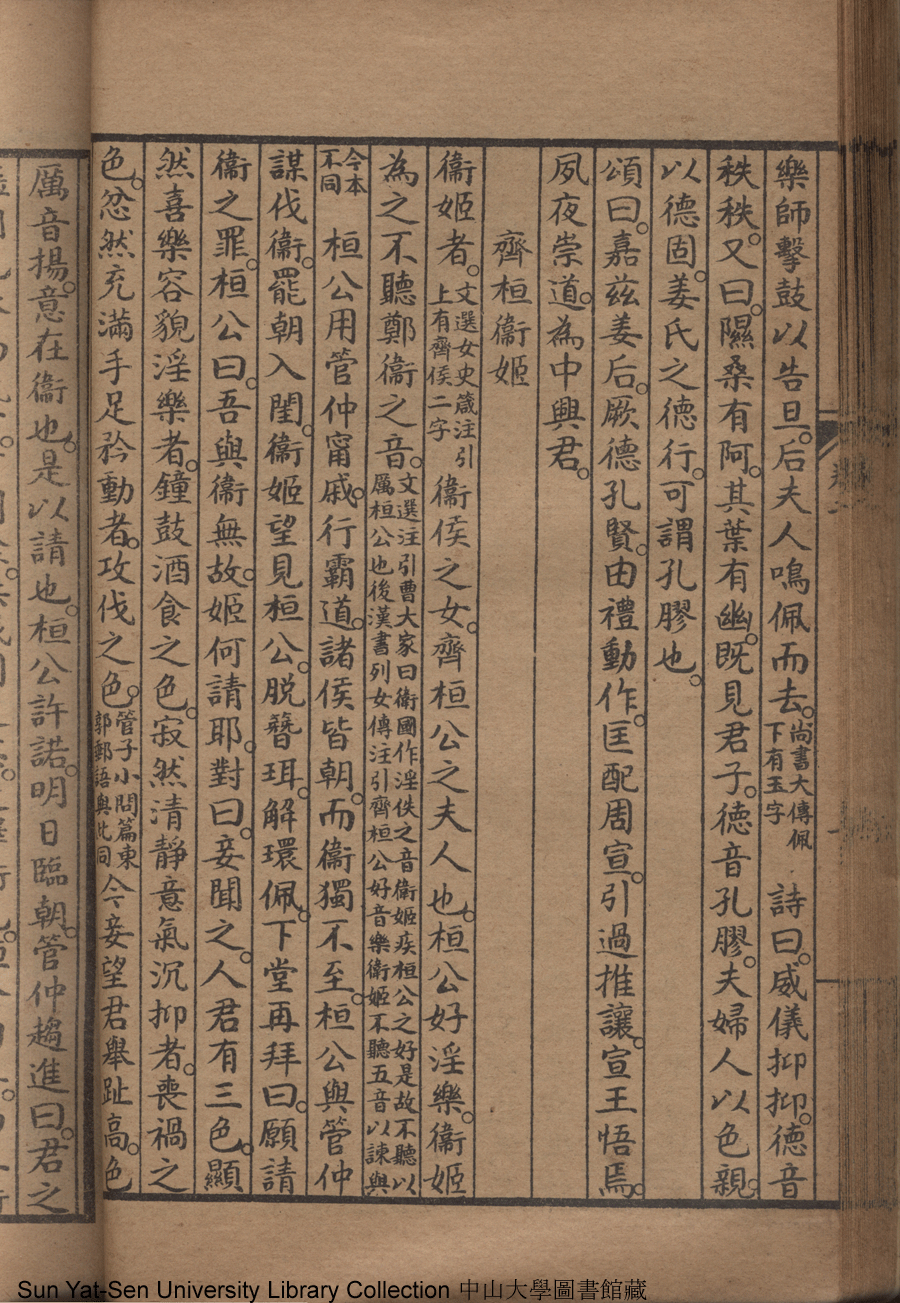 樂師擊鼓以告旦。后夫人鳴佩而去。尚書大傳佩下有玉字 詩曰。威儀抑抑。德音
秩秩。又曰。隰桑有阿。其葉有幽。既見君子。德音孔膠。夫婦人以色親。
以德固。姜氏之德行。可謂孔膠也。
頌曰。嘉茲姜后。厥德孔賢。由禮動作。匡配周宣。引過推讓。宣王悟焉。
夙夜崇道。為中興君。
齊桓衞姬
衞姬者。文選女史箴注引上有齊侯二字 衞侯之女。齊桓公之夫人也。桓公好淫樂。衞姬
為之不聽鄭衞之音。文選注引曹大家曰衛國作淫佚之音衛姬疾桓公之好是故不聽以厲桓公也後漢書列女傳注引齊桓公好音樂衞姬不聽五音以諫與
今本不同 桓公用管仲甯戚。行霸道。諸侯皆朝。而衞獨不至。桓公與管仲
謀伐衞。罷朝入閨。衞姬望見桓公。脫簪珥。解環佩。下堂再拜曰。願請
衞之罪。桓公曰。吾與衞無故。姬何請耶。對曰。妾聞之。人君有三色。顯
然喜樂容貌淫樂者。鐘鼓酒食之色。寂然清靜意氣沉抑者。喪禍之
色。忿然充滿手足矜動者。攻伐之色。管子小問篇東郭郵語與此同 今妾望君舉趾高。色
厲音揚。意在衞也。是以請也。桓公許諾。明日臨朝。管仲趨進曰。君之
Sun Yat-Sen University Library Collection 中山大學圖書館藏